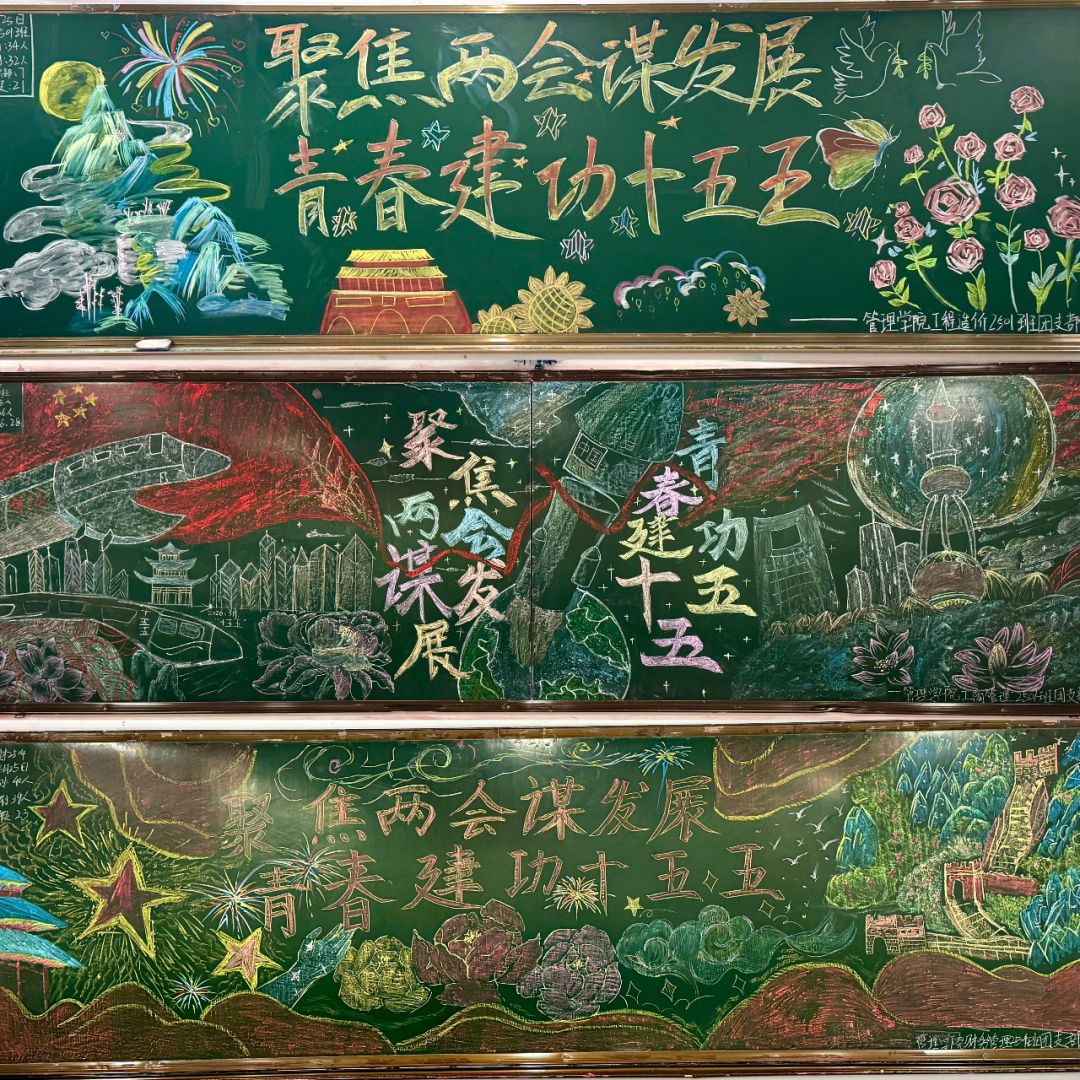 聚焦两会谋发展
青春建功十五五
管理学院工程造价2501班团支部
聚焦两会谋发展
青春建功十五五
聚焦两会谋发展
青春建功十五五